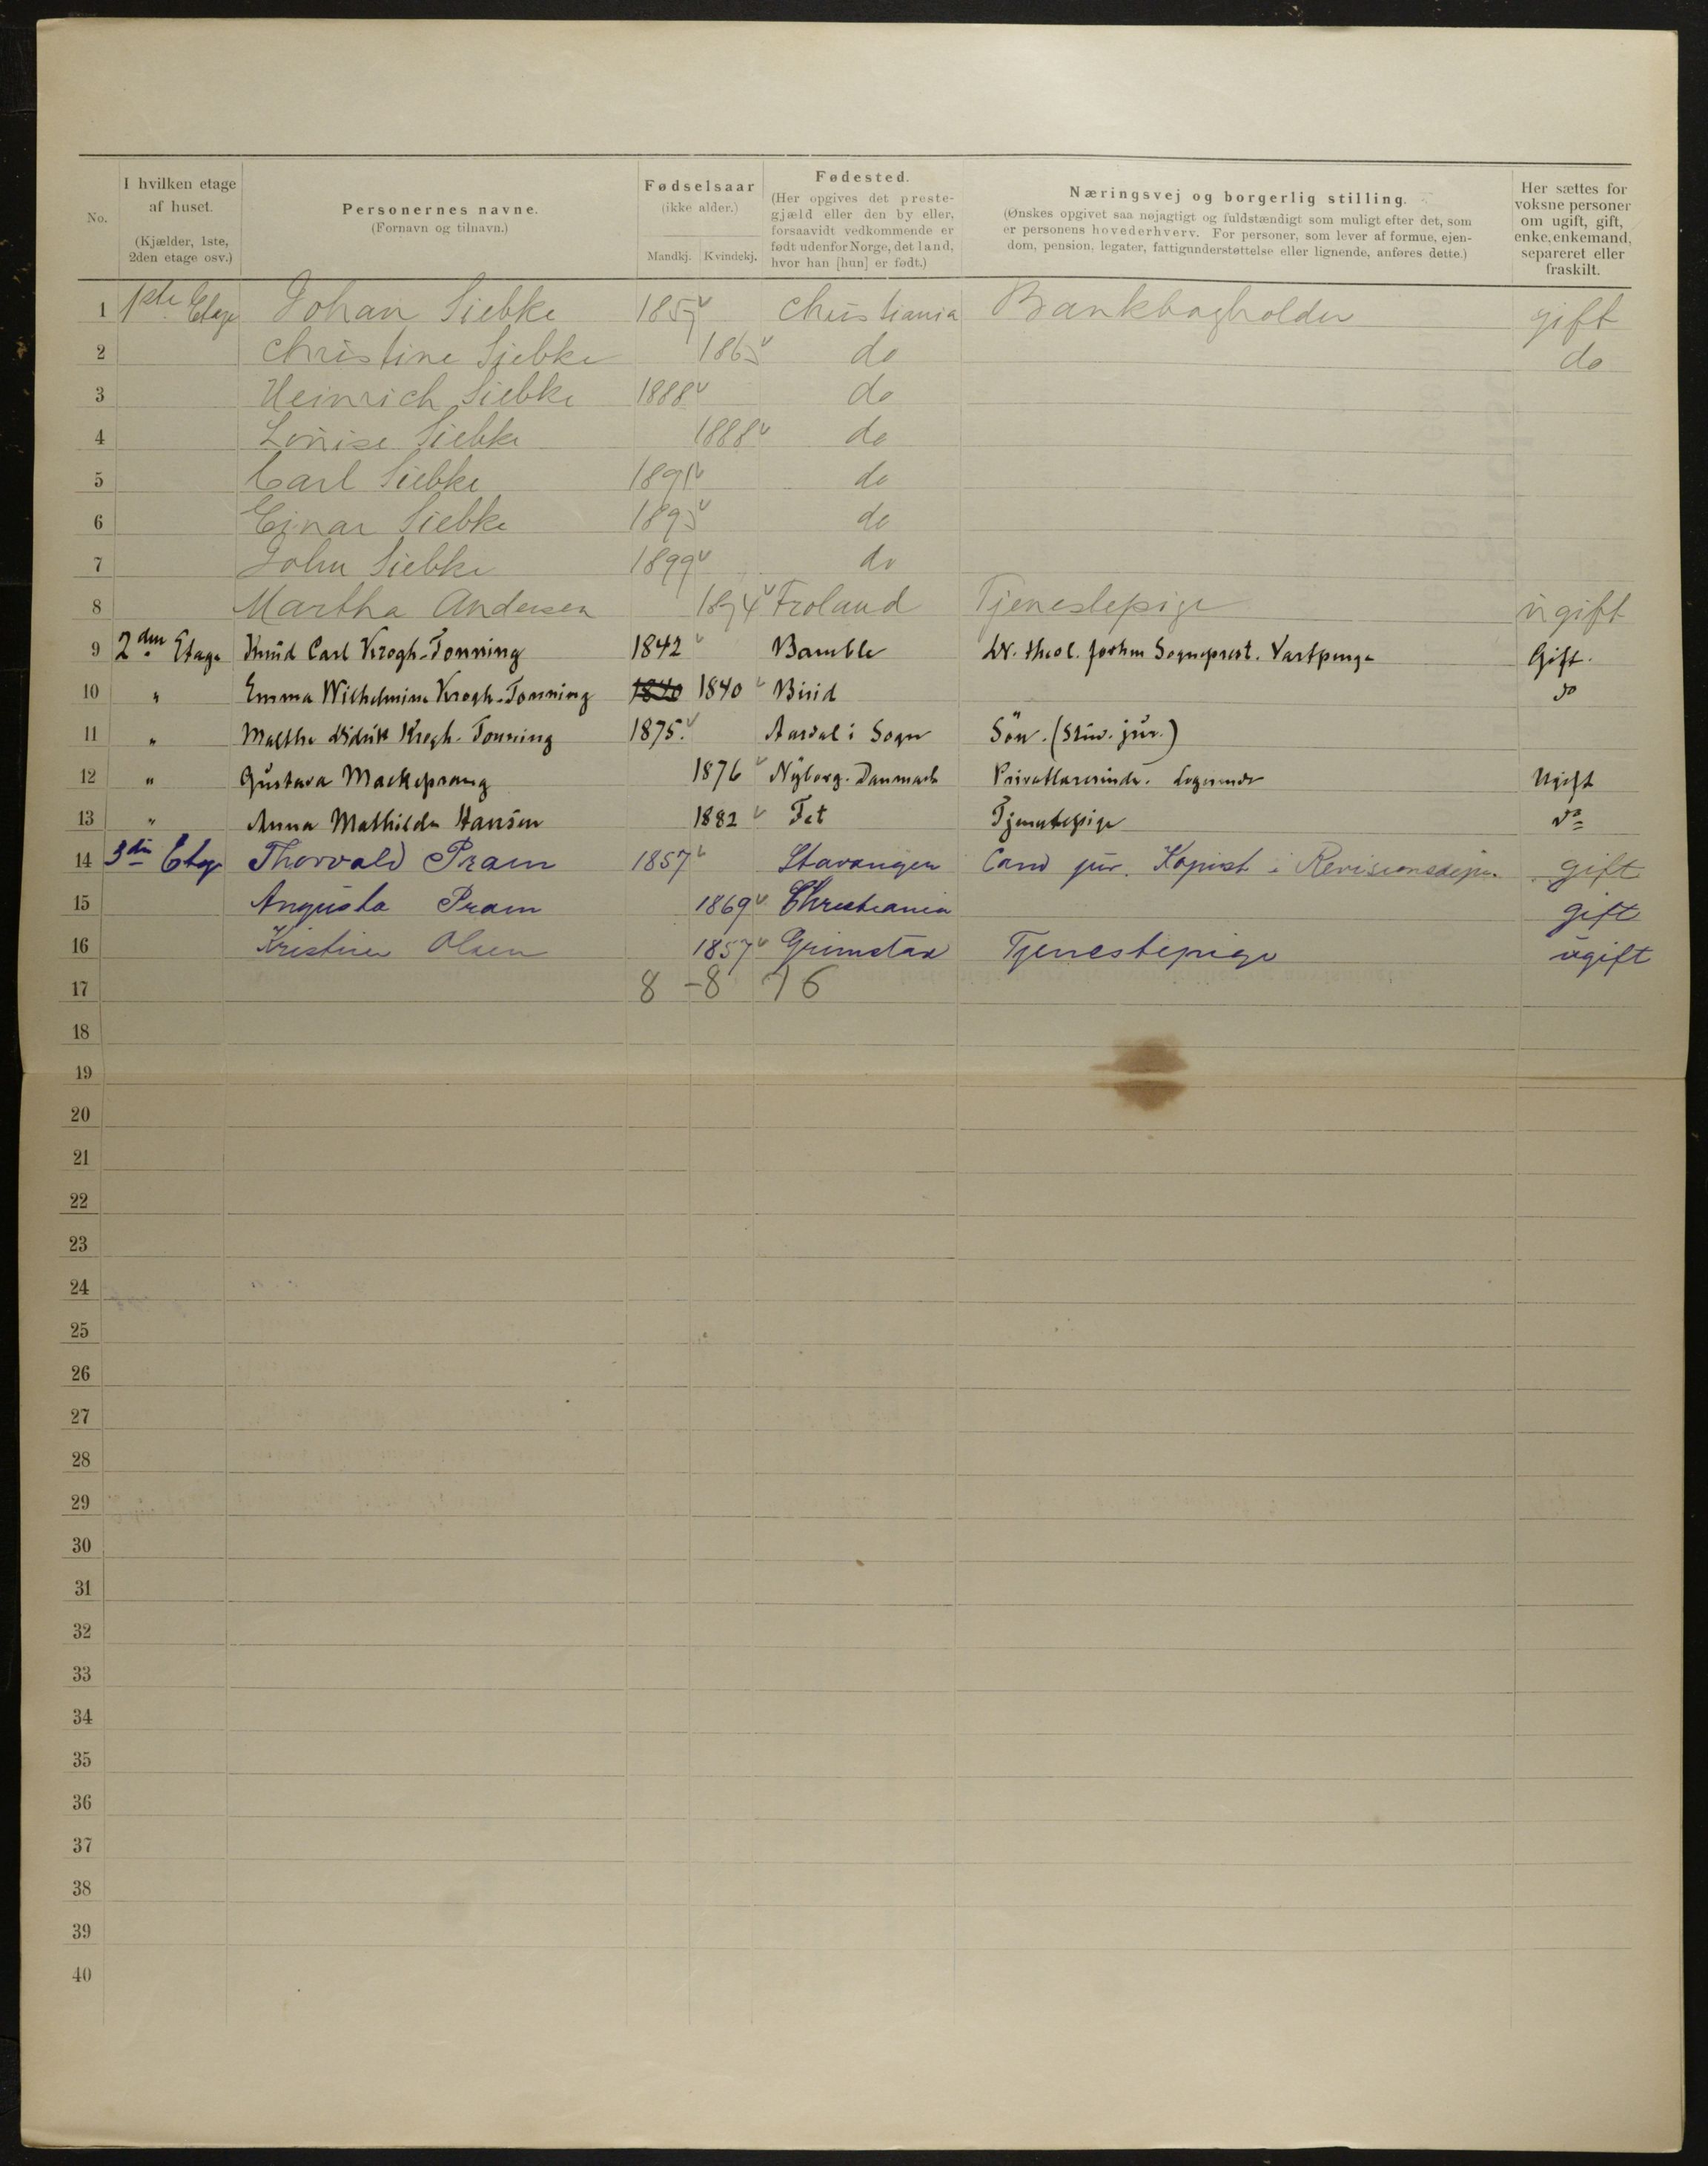 No.
I hvilken etage
af huset.
(Kjælder, 1ste,
2den etage osv.)
Personernes navne.
(Fornavn og tilnavn.)
Fødselsaar
(ikke alder.)
Mandkj. Kvindekj.
Fødested.
(Her opgives det preste-
gjæld eller den by eller,
forsaavidt vedkommende er
født udenfor Norge, det land,
hvor han [hun] er født.)
Næringsvej og borgerlig stilling.
(Ønskes opgivet saa nøjagtigt og fuldstændigt som muligt efter det, som
er personens hovederhverv. For personer, som lever af formue, ejen-
dom, pension, legater, fattigunderstøttelse eller lignende, anføres dette.)
Her sættes for
voksne personer
om ugift, gift,
enke, enkemand,
separeret eller
fraskilt.
1 1ste Etage Johan Siebke 1857 Christiania Bankbogholder gift
2 Christine Siebke 1865 do do
3 Heinrich Siebke 1888 do
4 Louise Siebke 1888 do
5 Carl Siebke 1891 do
6 Einar Siebke 1895 do
7 John Siebke 1899 do
8 Martha Andersen 1874 Froland Tjenestepige ugift
9 2den Etage Knud Carl Krogh-Tonning 1842 Bamble Dr. theol. Sogneprest. Gift.
10 " Emma Wilhelmine Krogh-Tonning 1840 1840 Birid do
11 " Malthe Didrik Krogh-Tonning 1875. Aardal i Sogn Sön. (Stud. jur.)
12 " Gustava Mackeprang 1876 Nyborg. Danmark Privatlærerinde. Logerende Ugift
13 " Anna Mathilde Hansen 1882 Fet Tjenestepige do
14 3die Etage Thorvald Pram 1857 Stavanger Cand jur. Kopist i Revisionsdep. gift
15 Augusta Pram 1869 Christiania gift
16 Kristine Olsen 1857 Grimstad Tjenestepige ugift
17 8 - 8 16
18
19
20
21
22
23
24
25
26
27
28
29
30
31
32
33
34
35
36
37
38
39
40